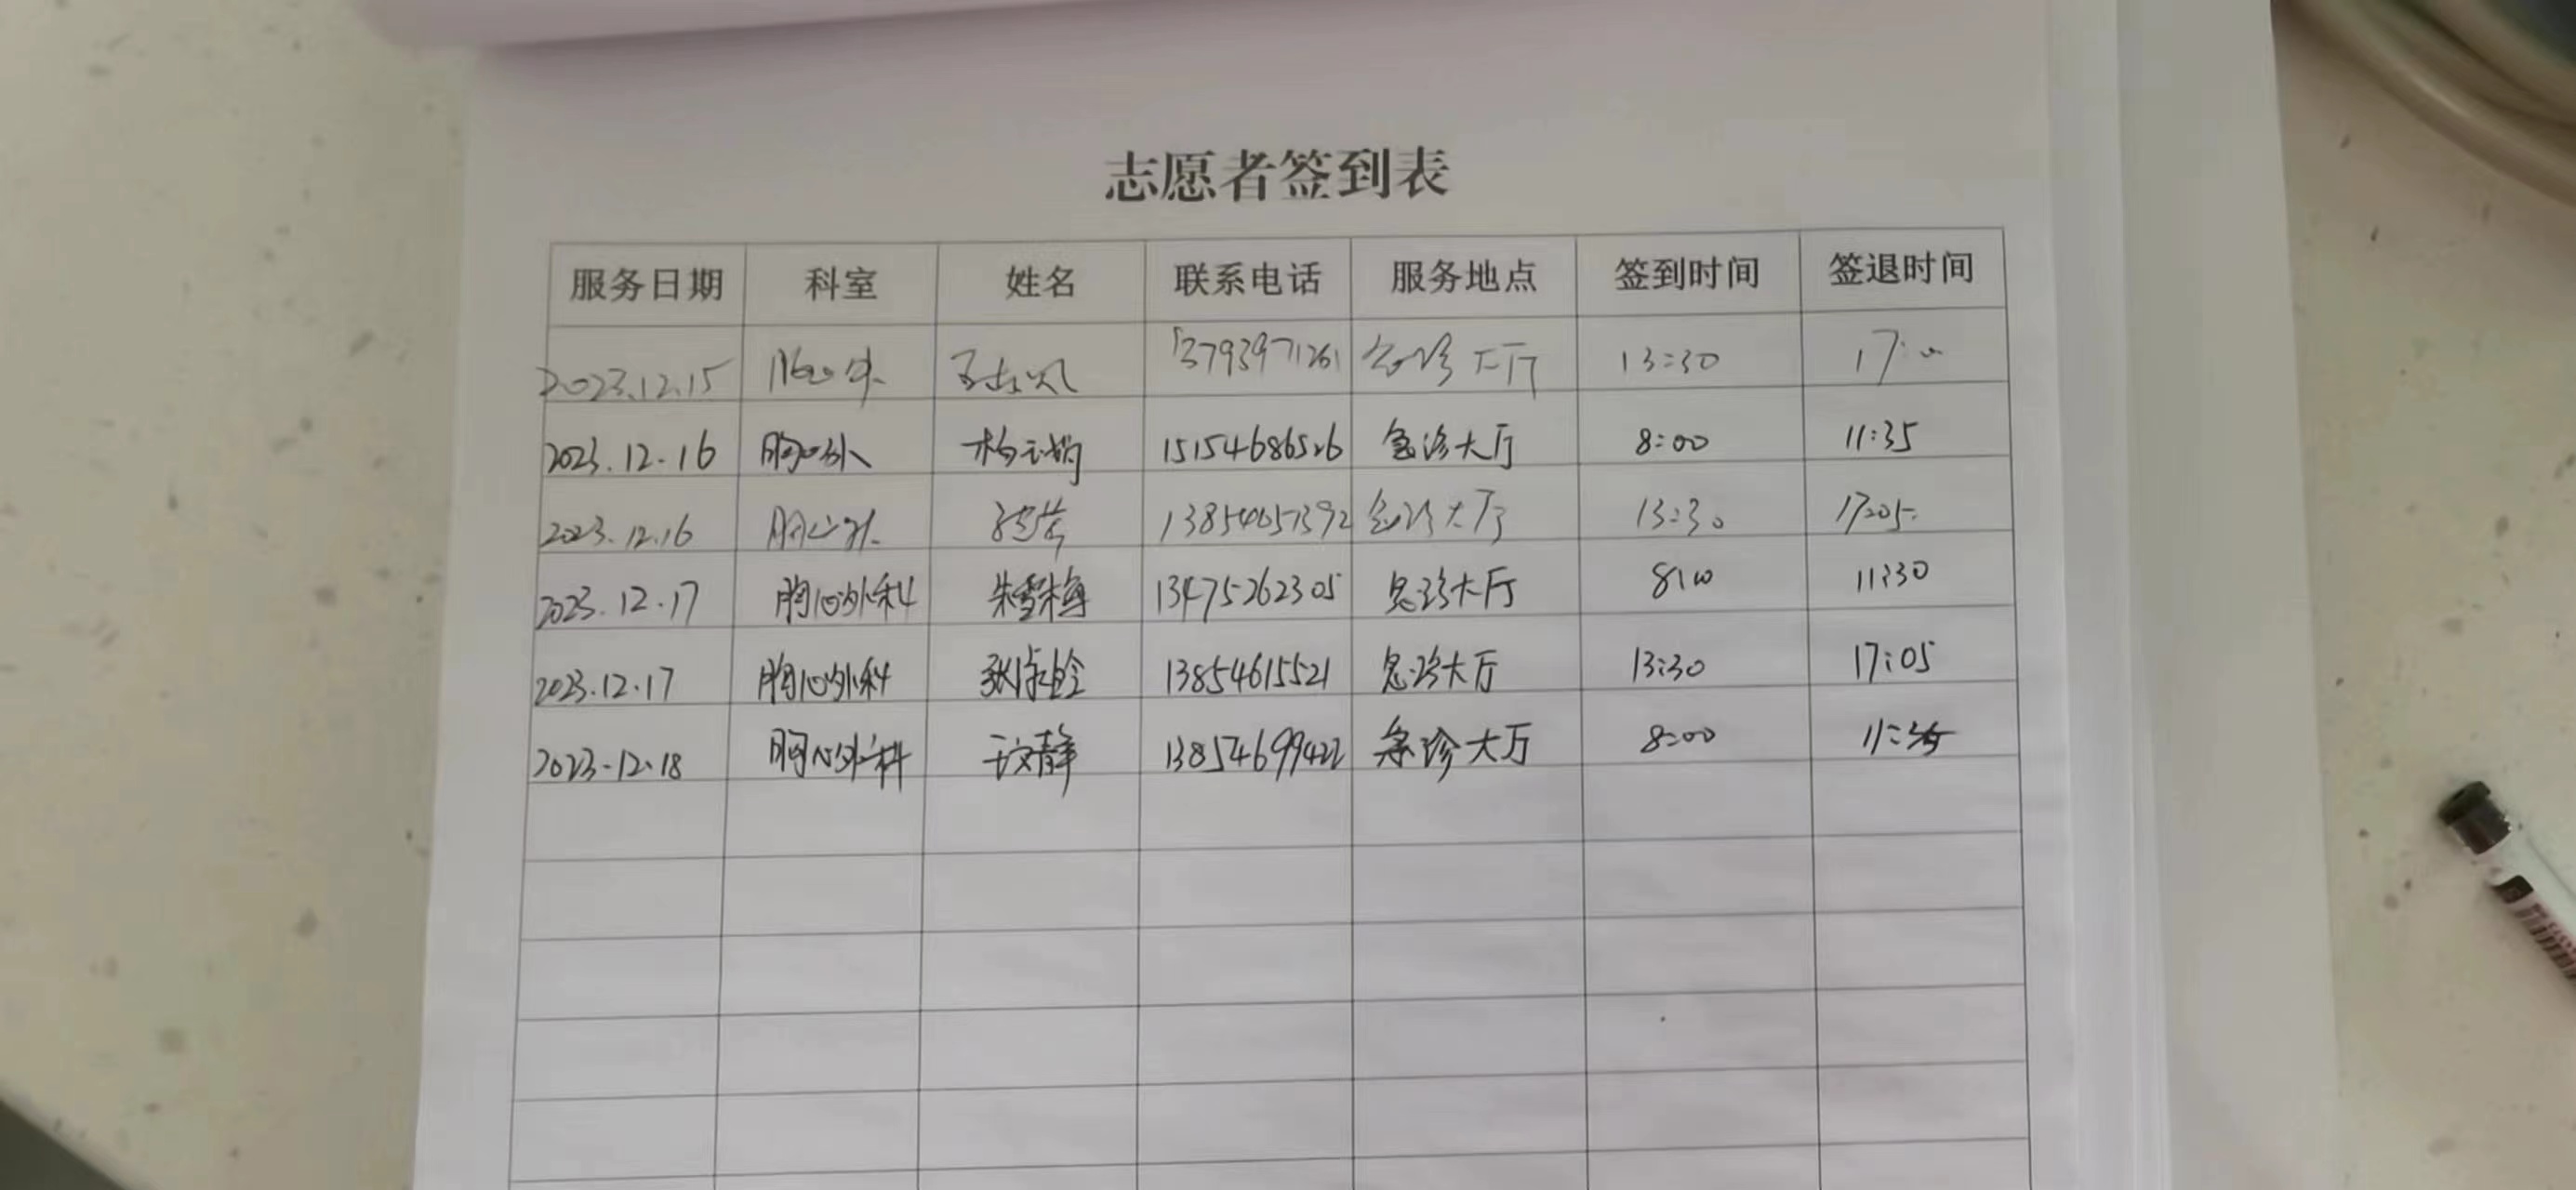 志愿者签到表
服务日期 科室 姓名 联系电话 服务地点 签到时间 签退时间
2023.12.15 胸心外 13793971261 急诊大厅 13:30 17:00
2023.12.16 胸心外 15154686526 急诊大厅 8:00 11:35
2023.12.16 胸心外 13854651392 急诊大厅 13:30 17:05
2023.12.17 胸心外科 朱雪梅 13475262305 急诊大厅 8:00 11:30
2023.12.17 胸心外科 13854615521 急诊大厅 13:30 17:05
2023.12.18 胸心外科 于文静 13854699422 急诊大厅 8:00